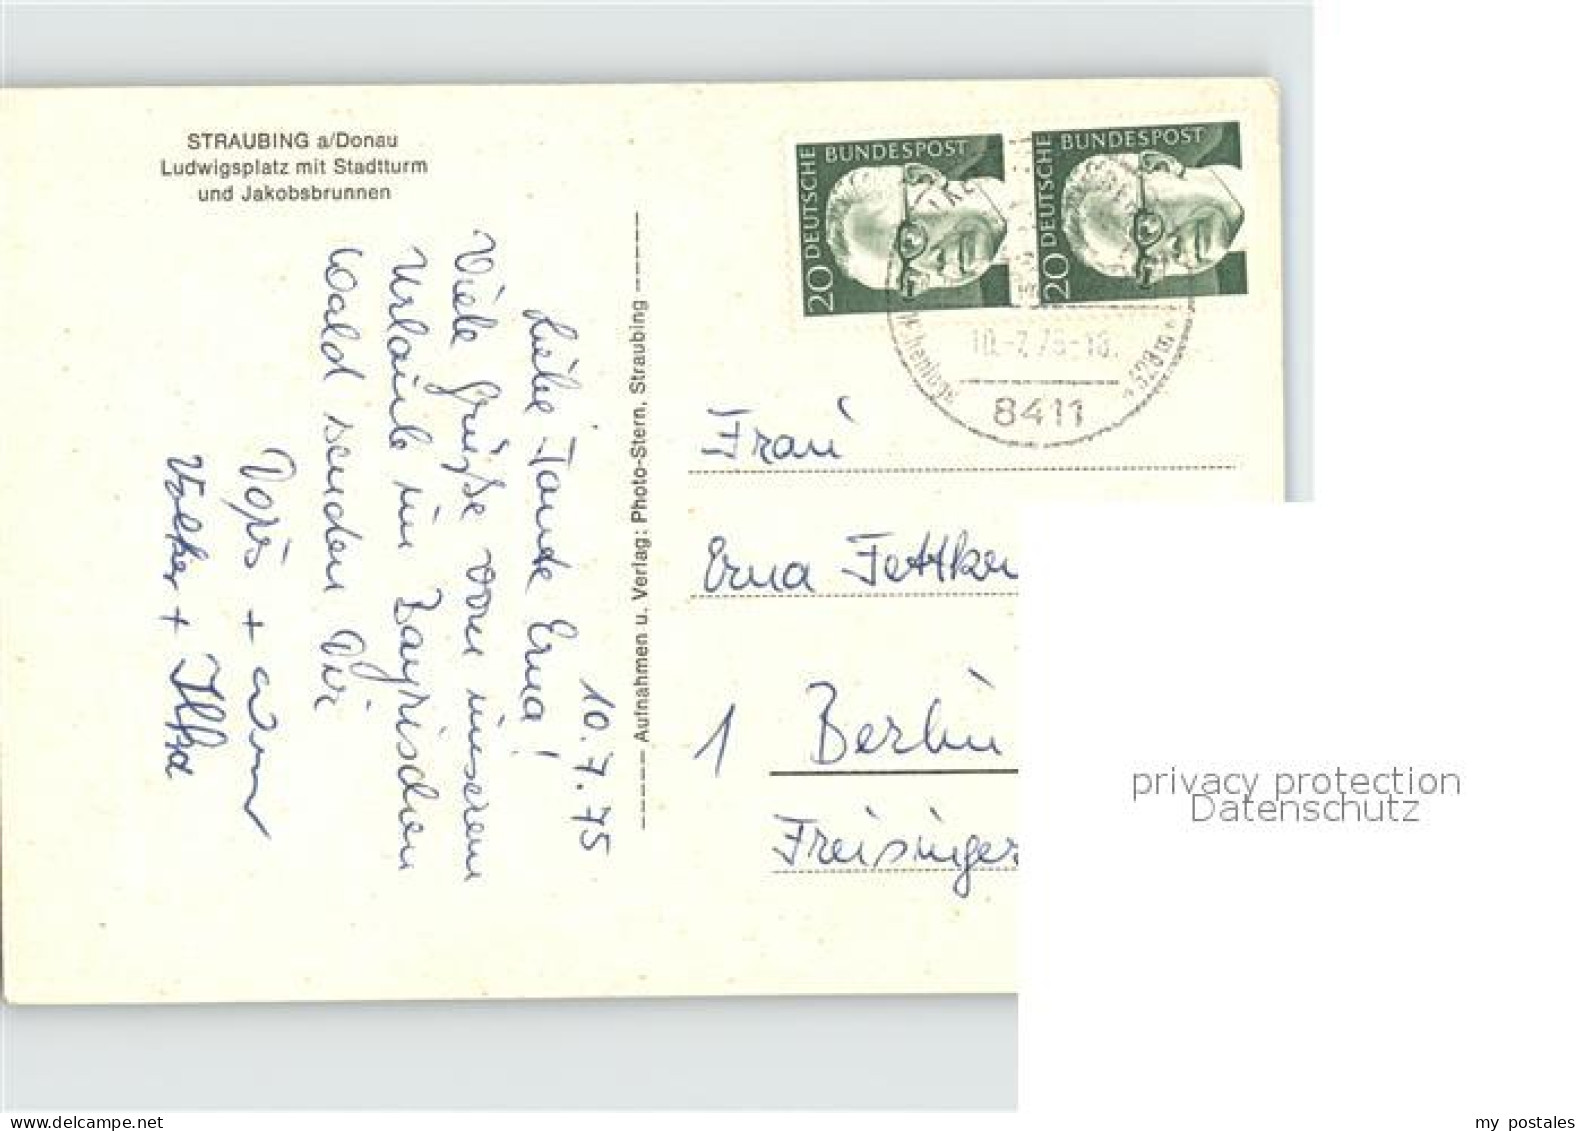 STRAUBING a/Donau
Ludwigsplatz mit Stadtturm
und Jakobsbrunnen
10.7.75
Liebe Tante Erna!
Viele Grüße von unserem
Urlaub im Bayrischen
Wald senden Dir
+
Volker + Ilka
Aufnahmen u. Verlag: Photo-Stern, Straubing
20 DEUTSCHE BUNDESPOST
20 DEUTSCHE BUNDESPOST
10.-7.75-18.
8411
Frau
Erna Fettke
1 Berlin
Freisinger
privacy protection
Datenschutz
www.delcampe.net
my postales